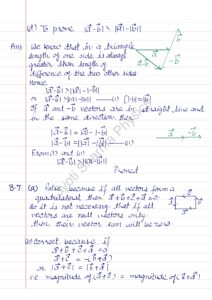 (d) To prove |a⃗-b⃗| > ||a⃗|-|b⃗||
Ans We know that in a triangle
length of one side is always
greater than length of
difference of the two other sides
Hence
|a⃗-b⃗| > ||a⃗|-|b⃗||
or |a⃗-b⃗| > ||a⃗|-|b⃗|| —(i)
If a⃗ and -b⃗ vectors are in straight line and
in the same direction then
|a⃗-b⃗| = |a⃗|-|b⃗|
|a⃗-b⃗| = ||a⃗|-|b⃗|| —(ii)
From (i) and (ii)
|a⃗-b⃗| > ||a⃗|-|b⃗||
Proved
3.7. (a) False because if all vectors form a
quadrilateral then a⃗+b⃗+c⃗+d⃗=0
So it is not necessary that if all
vectors are null vectors only
then their vector sum will be zero
(b) correct because if
a⃗+b⃗+c⃗+d⃗=0
a⃗+c⃗ = -(b⃗+d⃗)
or |a⃗+c⃗| = |b⃗+d⃗|
i.e. magnitude of (a⃗+c⃗) = magnitude of (b⃗+d⃗)